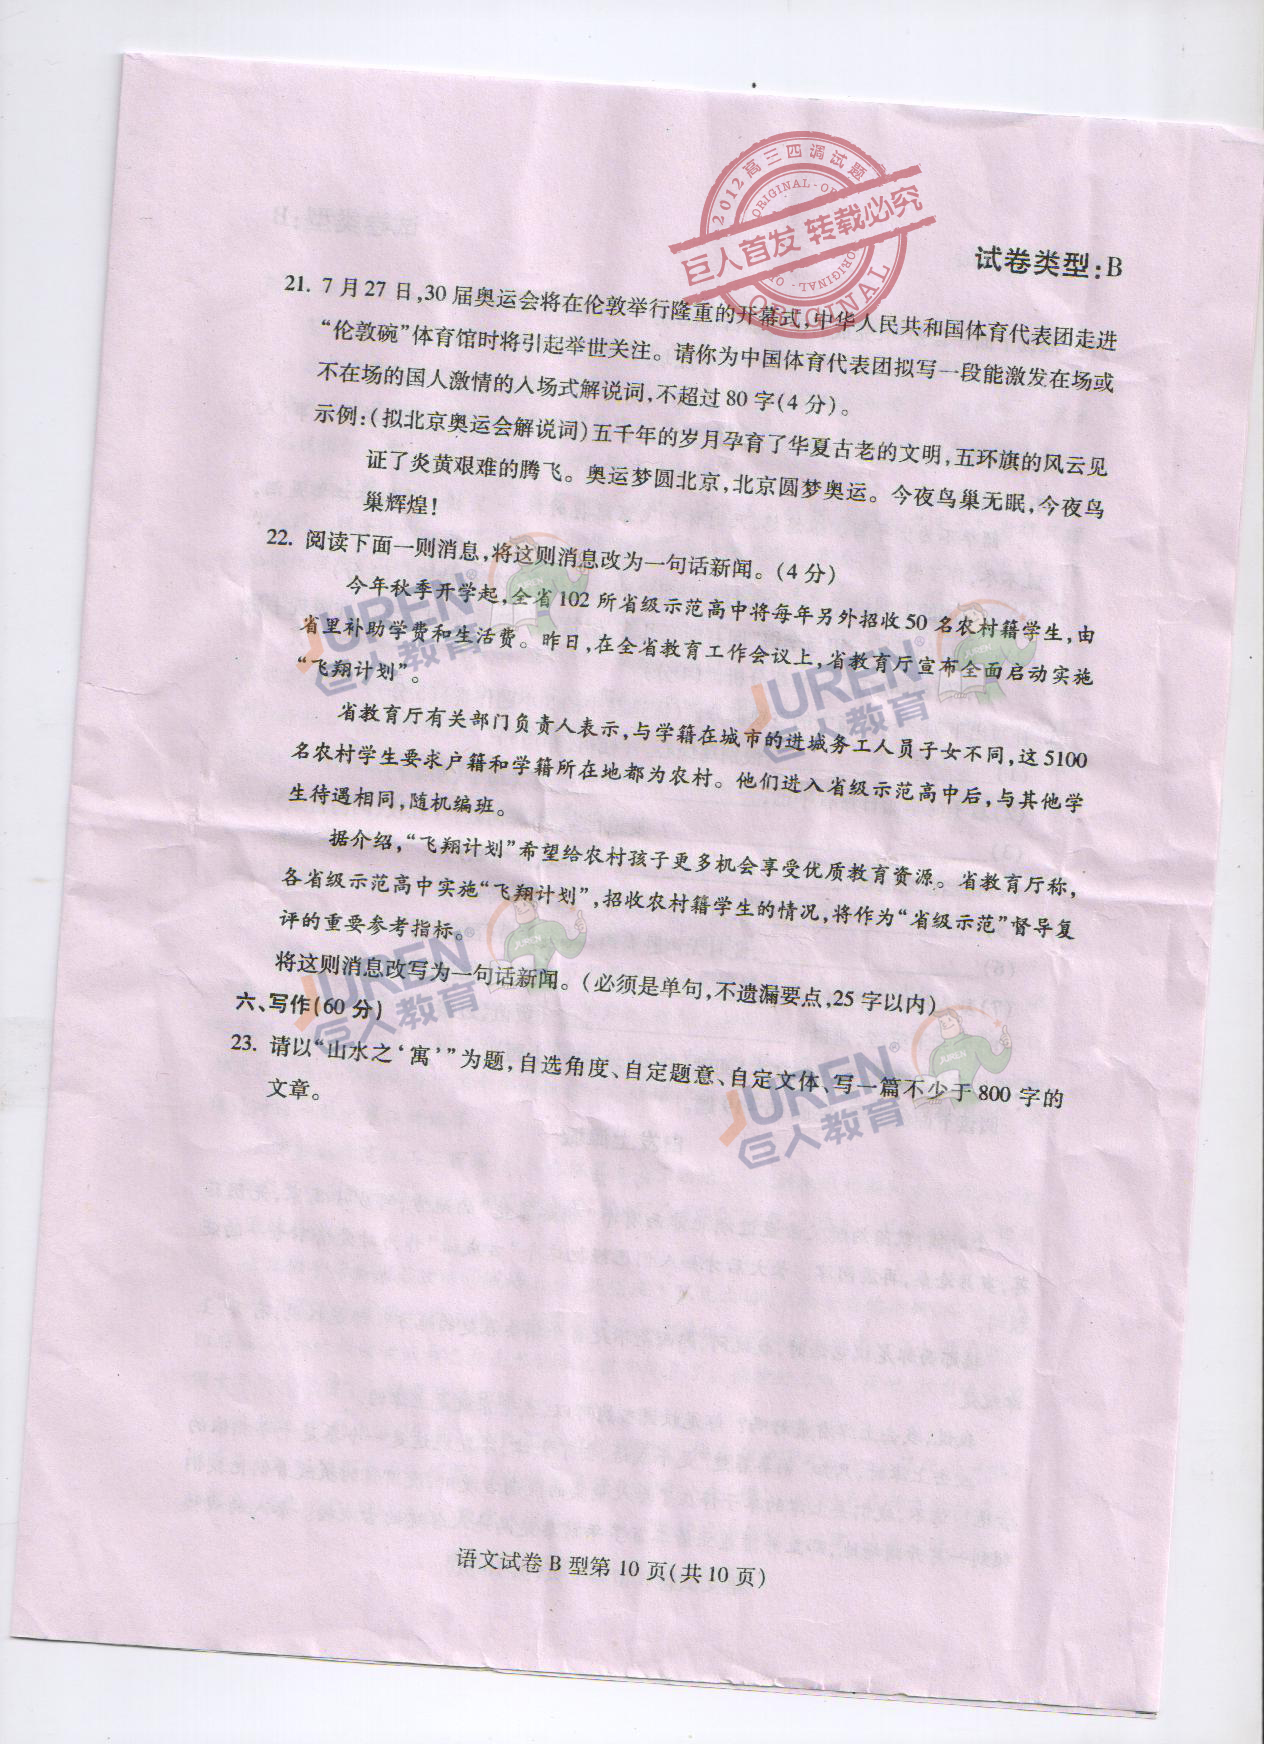 2012高三四调试题
ORIGINAL
巨人首发 转载必究
ORIGINAL
试卷类型:B
21. 7月27日,30届奥运会将在伦敦举行隆重的开幕式,中华人民共和国体育代表团走进
“伦敦碗”体育馆时将引起举世关注。请你为中国体育代表团拟写一段能激发在场或
不在场的国人激情的入场式解说词,不超过80字(4分)。
示例:(拟北京奥运会解说词)五千年的岁月孕育了华夏古老的文明,五环旗的风云见
证了炎黄艰难的腾飞。奥运梦圆北京,北京圆梦奥运。今夜鸟巢无眠,今夜鸟
巢辉煌!
22. 阅读下面一则消息,将这则消息改为一句话新闻。(4分)
今年秋季开学起,全省102所省级示范高中将每年另外招收50名农村籍学生,由
省里补助学费和生活费。昨日,在全省教育工作会议上,省教育厅宣布全面启动实施
“飞翔计划”。
省教育厅有关部门负责人表示,与学籍在城市的进城务工人员子女不同,这5100
名农村学生要求户籍和学籍所在地都为农村。他们进入省级示范高中后,与其他学
生待遇相同,随机编班。
据介绍,“飞翔计划”希望给农村孩子更多机会享受优质教育资源。省教育厅称,
各省级示范高中实施“飞翔计划”,招收农村籍学生的情况,将作为“省级示范”督导复
评的重要参考指标。
将这则消息改写为一句话新闻。(必须是单句,不遗漏要点,25字以内)
六、写作(60分)
23. 请以“山水之‘寓’”为题,自选角度、自定题意、自定文体、写一篇不少于800字的
文章。
语文试卷B型第10页(共10页)
JUREN®
巨人教育
JUREN®
巨人教育
JUREN®
巨人教育
JUREN®
巨人教育